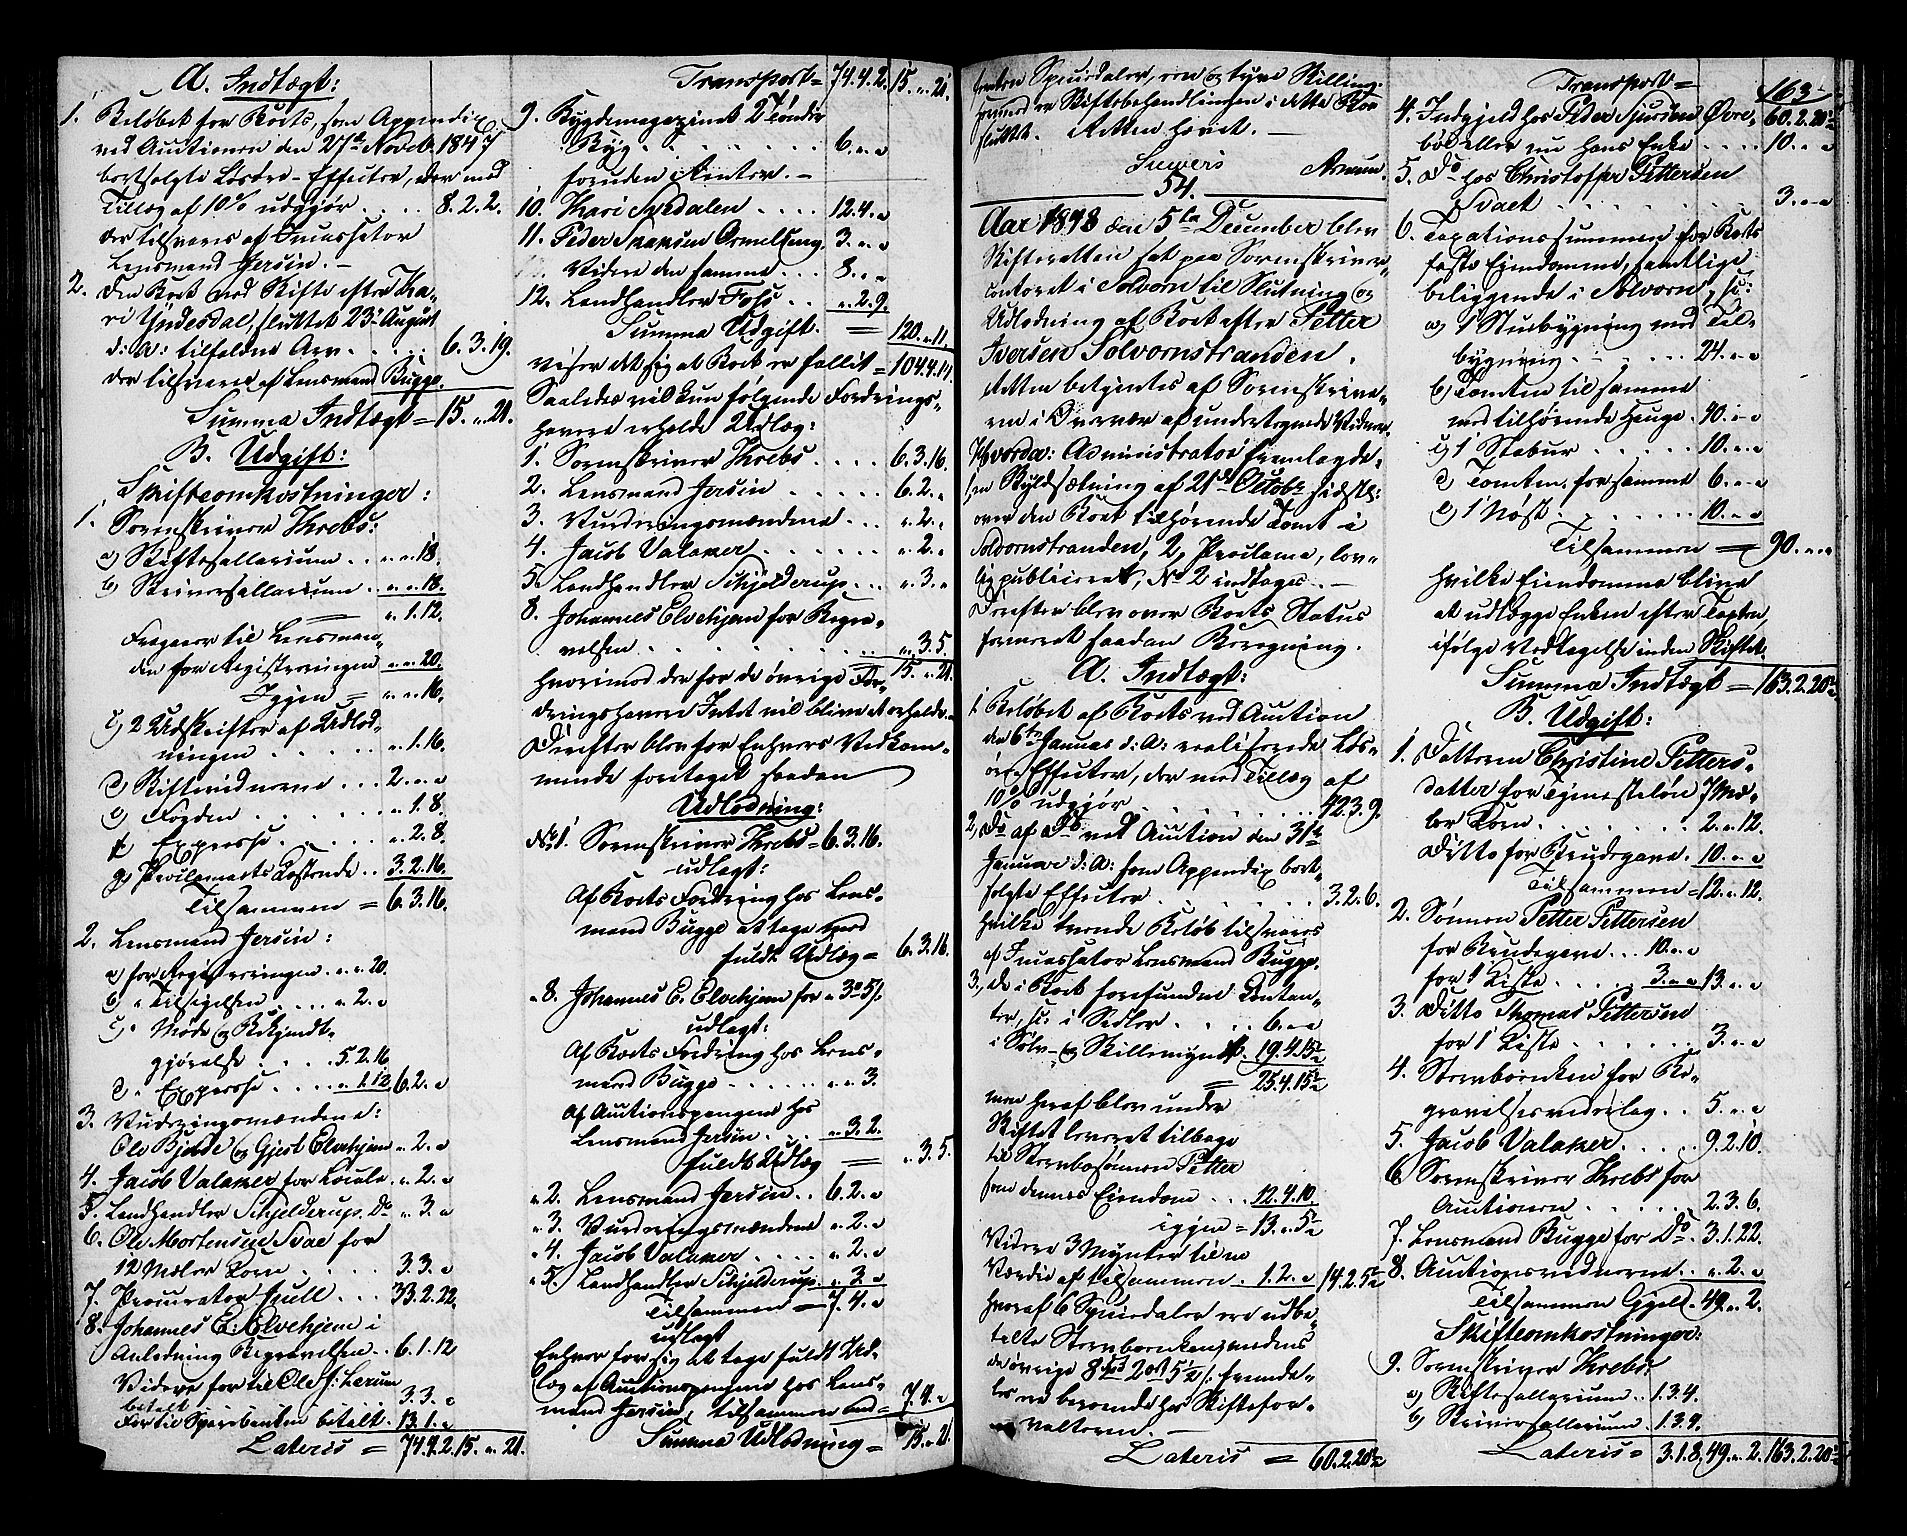 A. Indtægt:
1. Beløbet for Boets, som Appendix
ved Auctionen den 27de Novebr. 1847
bortsolgte Løsøre-Effecter, der med
Tillæg af 10% udgjør . . . 8.2.2.
der tilsvares af Incassator
Lensmand Jersin. –
2. Den Boet ved Skifte efter Ka-
ri Yndesdal, sluttet 23de August
d: A: tilfaldne Arv . . . 6.3.19.
der tilsvares af Lensmand Bugge.
Summa Indtægt = 15. „ 21.
B. Udgift:
Skifteomkostninger:
1. Sorenskriver Krebs:
a) Skiftesallarium . . „ „ 18.
b) Skriversallarium . „ „ 18.
= „ 1.12.
Fragaaer til Lensman-
den for Registreringen „ „ 20.
Igjen = „ „ 16.
c) 2 Udskrifter af Udlod-
ningen . . . . „ 1.16.
d) Skiftevidnerne . . . 2. „ „
e) Fogden . . . . . „ 1.8.
f) Expresse . . . . „ 2.8.
g) Proclamaets Kostende . . 3.2.16.
Tilsammen = 6.3.16.
2. Lensmand Jersin:
a) for Registreringen . „ „ 20.
b) „ Tilsigelsen . . . „ 2. „
c) „ Møde og Bekjendt-
gjørelse . . . . 5.2.16
d) „ Expresse . . . . „ 1.12. 6.2. „
3. Vurderingsmændene:
Ole Bjelde og Gjest Elvehjem „ 2. „
4. Jacob Valaker for Locale . „ 2. „
5. Landhandler Schjelderup Do „ 3. „
6. Ole Mortensen Svae for
12 Mæler Korn . . . . 3.3. „
7. Procurator Juell . . . 33.2.22.
8. Johannes E: Elvehjem i
Anledning Begravelsen . . 6.1.12
Videre for til Ole J: Lerum
betalt . . . 3.3. „
For til Sparebanken betalt . 13.1. „
Lateris = 74.4.2. 15. „ 21.
Transport = 74.4.2. 15. „ 21.
9. Bygdemagazinet 2 Tønder
Byg . . . . . . . . 6. „ „
foruden Renter. –
10. Kari Svedalen . . . . 12.4. „
11. Peder Ormelseng 3. „ „
Videre den samme . . . 8. „ „
12. Landhandler Foss . . „ 2.9.
Summa Udgift. = 120. „ 11.
viser det sig at Boet er fallit = 104.4.14.
Saaledes vil kun følgende Fordrings-
havere erholde Udlæg:
1. Sorenskriver Krebs . . . . 6.3.16.
2. Lensmand Jersin . . . . . 6.2. „
3. Vurderingsmændene . . . „ 2. „
4. Jacob Valaker . . . . . . „ 2. „
5. Landhandler Schjelderup . . . „ 3. „
8. Johannes Elvehjem for Begra-
velsen . . . . . . . . „ 3.5.
15. „ 21.
hvorimod der for de øvrige For-
dringshavere Intet vil blive at erholde. –
Derefter blev for Enhvers Vedkom-
mende foretaget saadan
Udlodning:
No 1. Sorenskriver Krebs = 6.3.16.
udlagt:
Af Boets Fordring hos Lens-
mand Bugge at tage med
fuldt Udlæg = 6.3.16.
„ 8. Johannes E. Elvehjem for „ 3 o 5 s.
udlagt:
Af Boets Fordring hos Lens-
mand Bugge . . . . . . „ „ 3.
Af Auctionspengene hos
Lensmand Jersin . . . „ 3.2.
fuldt Udlæg = „ 3.5.
„ 2. Lensmand Jersin . . 6.2. „
„ 3. Vurderingsmændene „ 2. „
„ 4. Jacob Valaker . . . . „ 2. „
„ 5. Landhandler Schjelderup . „ 3. „
Tilsammen = 7.4. „
udlagt
Enhver for sig at tage fuldt Ud-
læg af Auctionspengene hos Lens-
mand Jersin, tilsammen med = 7.4. „
Summa Udlodning = 15. „ 21.
femten Speciedaler, een og tyve Skilling.
hvormed er Skiftebehandlingen i dette Boe
sluttet. Retten hævet. –
54.
Aar 1848 den 5te December blev
Skifteretten sat paa Sorenskriver-
contoret i Solvorn til Slutning og
Udlodning af Boet efter Petter
Iversen Solvornstranden.
Retten betjentes af Sorenskrive-
ren i Overvær af undertegnede Vidner.
Hvorda: Administrator fremlagde
en Skyldsætning af 21de Octobr sidstl:
over den Boet tilhørende Tomt i
Solvornstranden, 2, Proclama, lov-
lig publiceret, No 2 indtages. –
Derefter blev over Boets Status
formeret saadan Beregning.
A. Indtægt:
1. Beløbet af Boets ved Auction
den 6te Januar d: A: realiserede Løs-
øre-Effecter, der med Tillæg af
10% udgjør . . . . . . . 42.3.9.
2, Do af Do ved Auction den 31te
Januar d: A: som Appendix bort-
solgte Effecter . . . . . . . 3.2.6.
hvilke tvende Beløb tilsvares
af Incassator Lensmand Bugge.
3., De i Boet forefundne Contan-
ter, sc: i Sedler . . . . 6. „ „
i Sølv- og Skillemynt . 19.4.15½
= 25.4.15½
men heraf blev under
Skiftet leveret tilbage
til Stervbosønnen Petter
som dennes Eiendom . . . 12.4.10.
igjen = 13. „ 5½
Videre 3 Mynter til en
Værdie af tilsammen . 1.2. „ 14.2.5½
hvoraf 6 Speciedaler ere udbe-
talte Stervboenken, medens
de øvrige 8 Spd 2 ort 5½ s. fremde-
les ere beroende hos Skiftefor-
valteren. –
Lateris = 60.2.20½
Transport = 163.
60.2.20½
4. Indgjeld hos Peder Sjursen Øvre-
bøe eller nu hans Enke . . . . 10. „ „
5. Do hos Christoffer Pettersen
Svaet . . . . . . . . 3. „ „
6. Taxationssummen for Boets
faste Eiendomme, samtlige
beliggende i Solvorn, sc:
a) 1 Stuebygning med Til-
bygning . . . . . . 24. „ „
b) Tomten til samme
med tilhørende Hauge . 40. „ „
c) 1 Stabur . . . . . 10. „ „
d) Tomten for samme 6. „ „
e) 1 Nøst . . . . . . 10. „ „
Tilsammen = 90. „ „
hvilke Eiendomme blive
at udlægge Enken efter Taxten,
ifølge Vedtagelse inden Skiftet.
Summa Indtægt = 163.2.20½
B. Udgift:
1. Datteren Christine Petters-
datter for Tjenesteløn 7 Mæ-
ler Korn . . . . . . . 2. „ 12.
Ditto for Brudegave . 10. „ „
Tilsammen = 12. „ 12.
2. Sønnen Petter Pettersen
for Brudegave . . . 10. „ „
for 1 Kiste . . . . . 3. „ „ 13. „ „
3. Ditto Thomas Pettersen
for 1 Kiste . . . . . . 3. „ „
4. Stervboenken for Be-
gravelsesvederlag . . 5. „ „
5. Jacob Valaker . . . . 9.2.10.
6. Sorenskriver Krebs for
Auctionen . . . . . 2.3.6.
7. Lensmand Bugge for Do . 3.1.22.
8. Auctionsvidnerne . . „ 2. „
Tilsammen Gjeld . 49. „ 2.
Skifteomkostninger:
9. Sorenskriver Krebs:
a) Skiftesallarium . . 1.3.4.
b) Skriversallarium . 1.3.4.
Lateris = 3.1.8. 49. „ 2. 163.2.20½